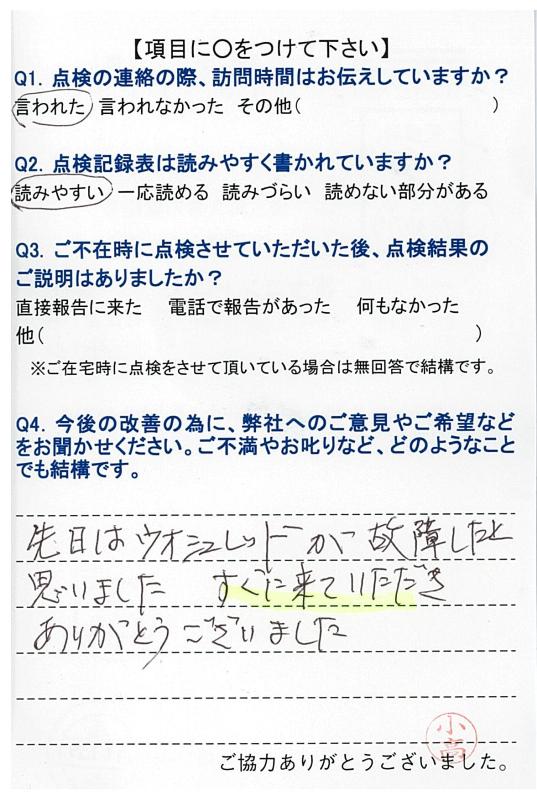 【項目に〇をつけて下さい】
Q1. 点検の連絡の際、訪問時間はお伝えしていますか？
言われた 言われなかった その他( )
Q2. 点検記録表は読みやすく書かれていますか？
読みやすい 一応読める 読みづらい 読めない部分がある
Q3. ご不在時に点検させていただいた後、点検結果の
ご説明はありましたか？
直接報告に来た 電話で報告があった 何もなかった
他( )
※ご在宅時に点検をさせて頂いている場合は無回答で結構です。
Q4. 今後の改善の為に、弊社へのご意見やご希望など
をお聞かせください。ご不満やお叱りなど、どのようなこと
でも結構です。
先日はウオシュレットが故障したと
思いました すぐに来ていただき
ありがとうございました
小高
ご協力ありがとうございました。